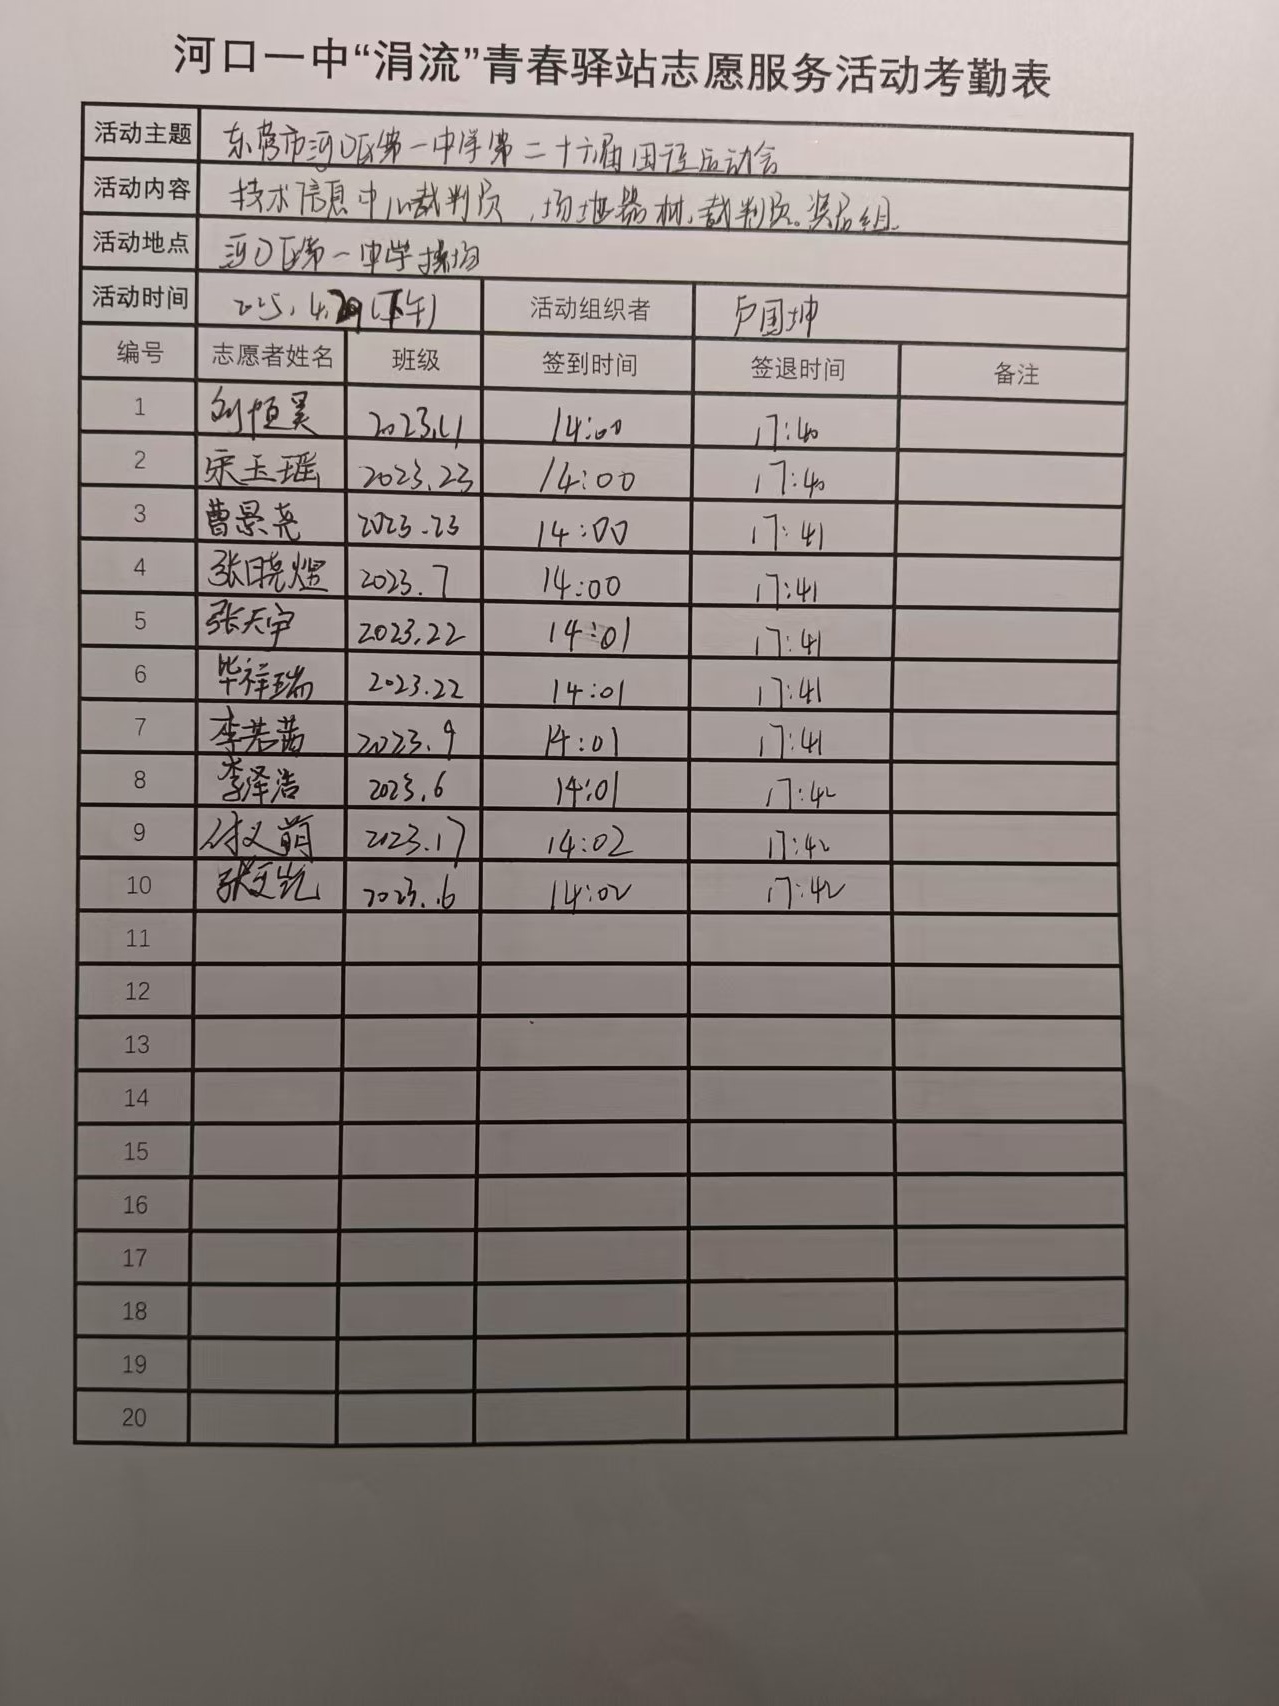 河口一中“涓流”青春驿站志愿服务活动考勤表
活动主题 东营市河口区第一中学第二十六届田径运动会
活动内容 技术信息中心裁判员，场地器材，裁判员。奖品组.
活动地点 河口区第一中学操场
活动时间 2025.4.29(下午) 活动组织者 卢国坤
编号 志愿者姓名 班级 签到时间 签退时间 备注
1 刘恒昊 2023.11 14:00 17:40
2 宋玉瑶 2023.23 14:00 17:40
3 曹景尧 2023.23 14:00 17:41
4 张晓煜 2023.7 14:00 17:41
5 张天宇 2023.22 14:01 17:41
6 毕祥瑞 2023.22 14:01 17:41
7 李若茜 2023.9 14:01 17:41
8 李泽浩 2023.6 14:01 17:42
9 2023.17 14:02 17:42
10 张文凯 2023.6 14:02 17:42
11
12
13
14
15
16
17
18
19
20